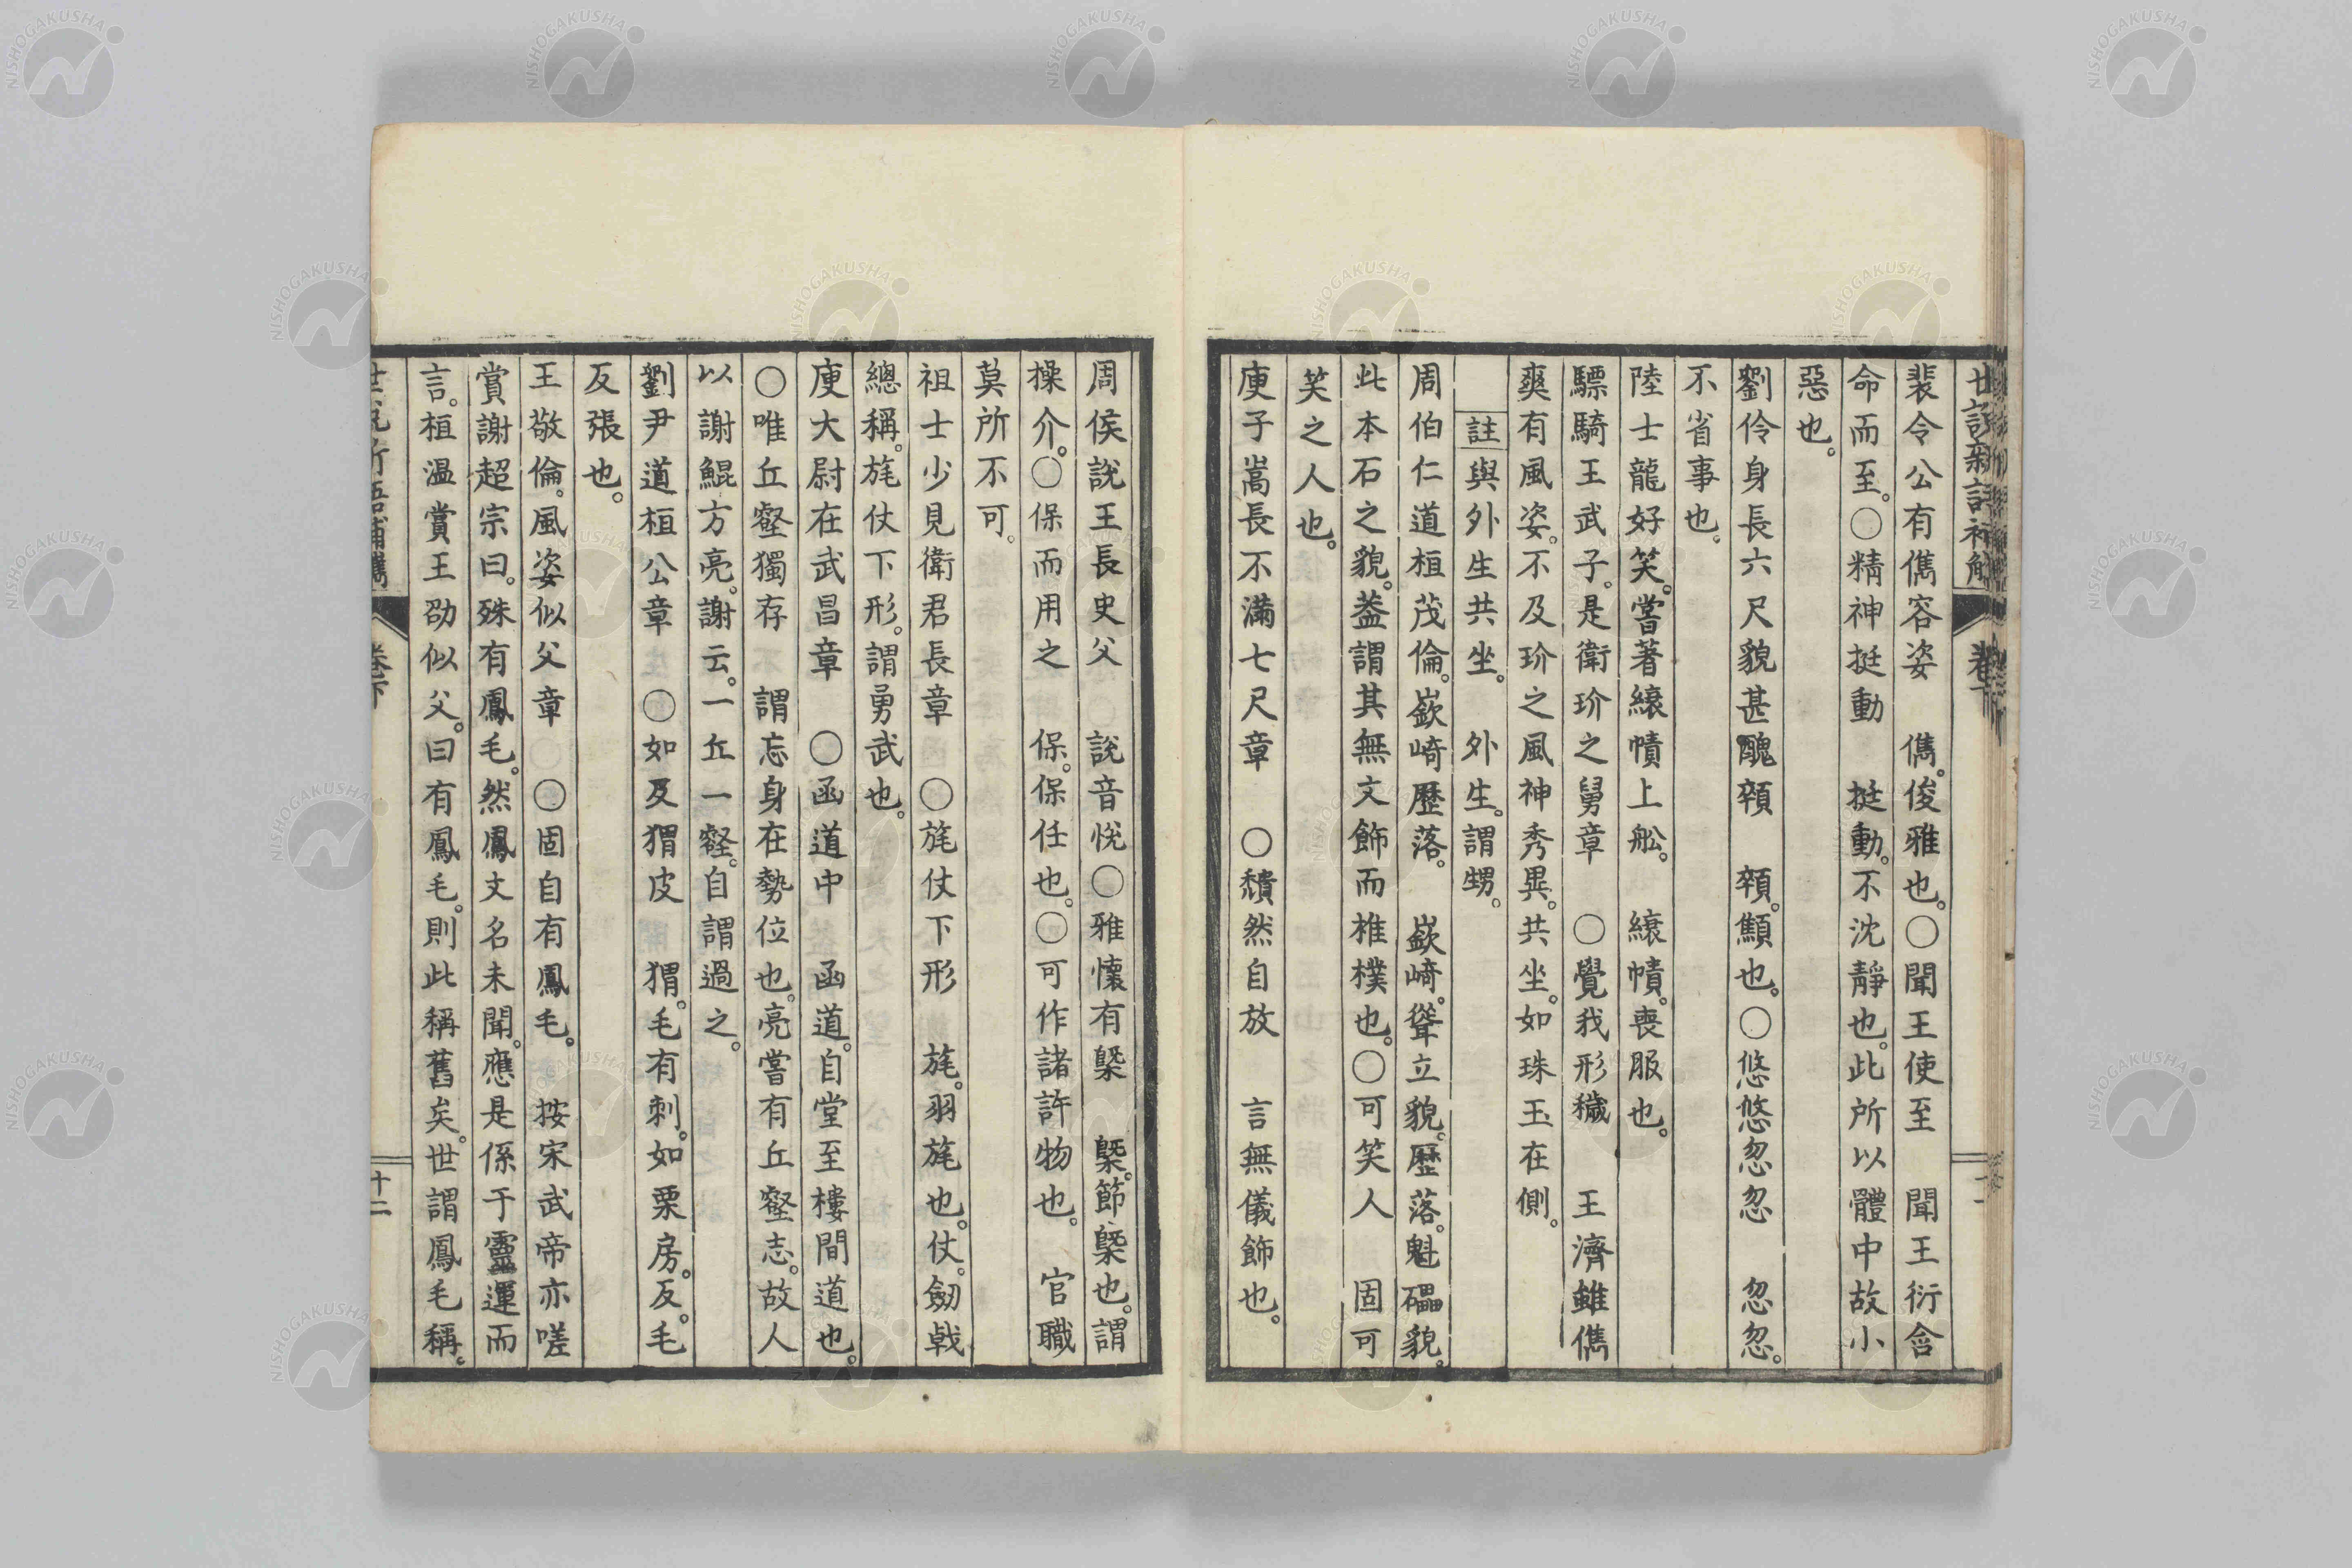 裴令公有儁容姿　儁。俊雅也。〇聞王使至　聞王衍含
命而至。〇精神挺動　挺動。不沈靜也。此所以體中故小
惡也。
劉伶身長六尺貌甚醜顇　顇。顦也。〇悠悠忽忽　忽忽。
不省事也。
陸士龍好笑。嘗著縗幘上舩。　縗幘。喪服也。
驃騎王武子。是衛玠之舅章　〇覺我形穢　王濟雖儁
爽有風姿。不及玠之風神秀異。共坐。如珠玉在側。
註與外生共坐。　外生。謂甥。
周伯仁道桓茂倫。嶔崎歷落。　嶔崎。聳立貌。歷落。魁礧貌。
此本石之貌。葢謂其無文飾而椎樸也。〇可笑人　固可
笑之人也。
庾子嵩長不滿七尺章　〇頹然自放　言無儀飾也。
周侯說王長史父　〇說音悅〇雅懷有槩　槩。節槩也。謂
操介。〇保而用之　保。保任也。〇可作諸許物也。　官職
莫所不可。
祖士少見衛君長章　〇旄仗下形　旄。羽旄也。仗。劒戟
總稱。旄仗下形。謂勇武也。
庾大尉在武昌章　〇函道中　函道。自堂至樓間道也。
〇唯丘壑獨存　謂忘身在勢位也。亮嘗有丘壑志。故人
以謝鯤方亮。謝云。一丘一壑。自謂過之。
劉尹道桓公章　〇如反猬皮　猬。毛有刺。如栗房。反。毛
反張也。
王敬倫。風姿似父章　〇固自有鳳毛。　按宋武帝亦嗟
賞謝超宗曰。殊有鳳毛。然鳳丈名未聞。應是係于靈運而
言。桓温賞王劭似父。曰有鳳毛。則此稱舊矣。世謂鳳毛稱。
卷下
十二
NISHOGAKUSHA